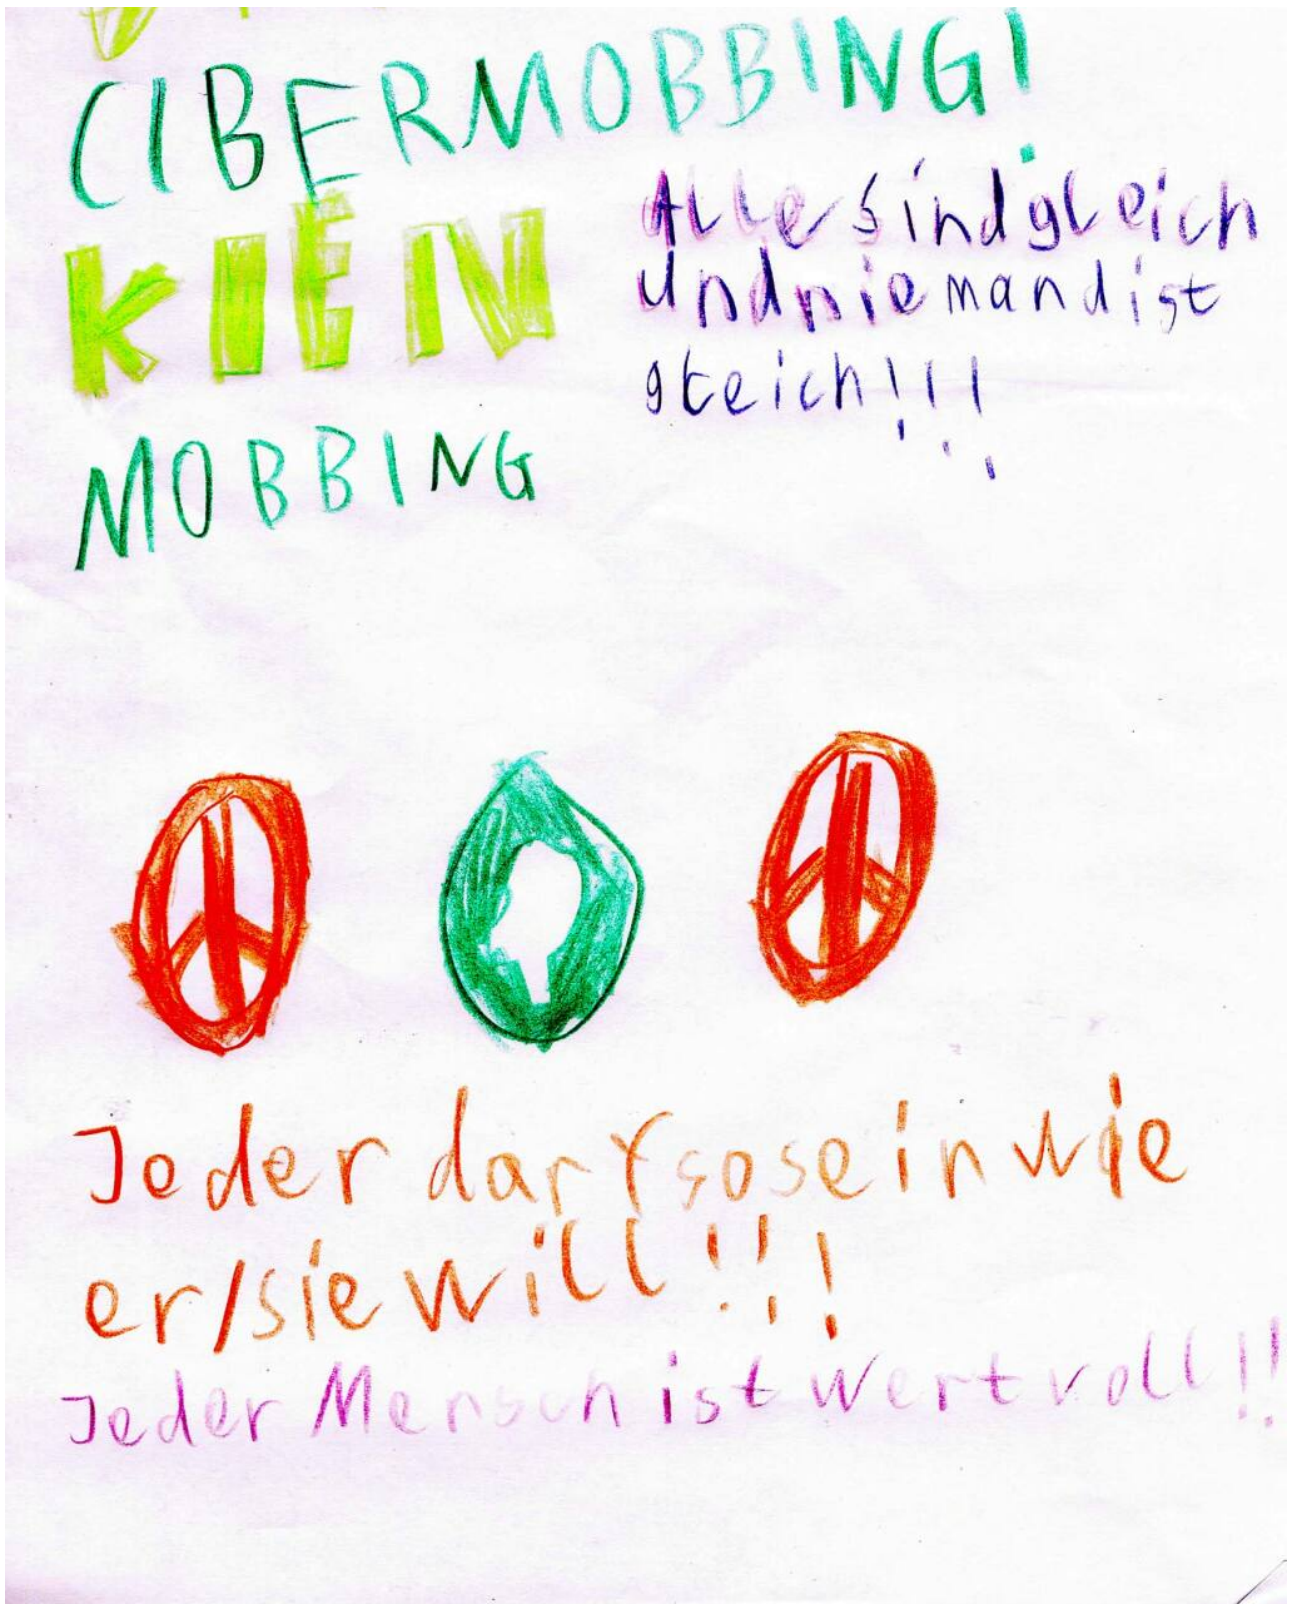 CIBERMOBBING!
KIEN
MOBBING
Alle sind gleich
und niemand ist
gleich!!!
Jeder darf so sein wie
er/sie will!!!
Jeder Mensch ist wertvoll!!